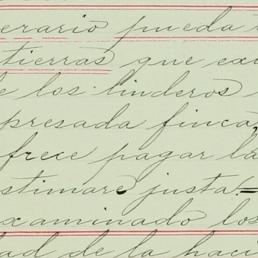 erario pueda
tierras que ex
e los linderos
presada finca
frece pagar la
stimare justa.
xaminado los
dad de la haci